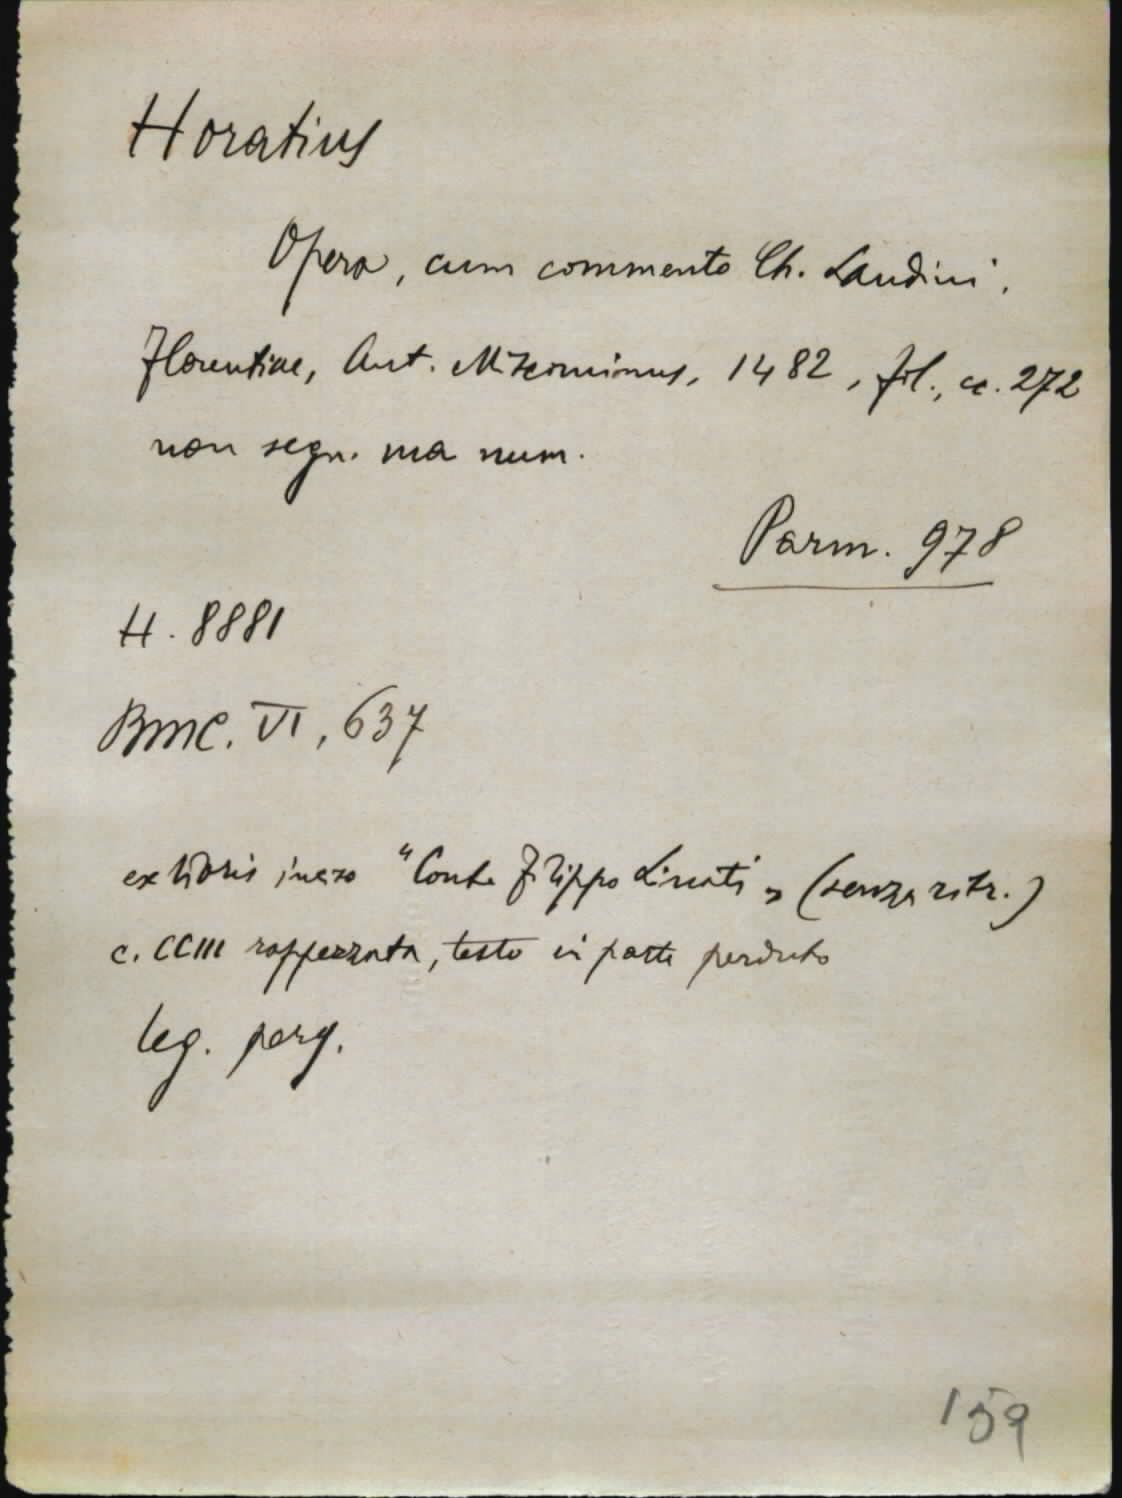 Horatius
Opera, cum commento Ch. Landini,
Florentiae, Ant. Miscominus, 1482, fol., cc. 272
non segn. ma num.
Parm. 978
H. 8881
BMC. VI, 637
ex libris inciso "Conte Filippo Linati" (senza ritr.)
c. CCIII rappezzata, testo in parte perduto
leg. perg.
159